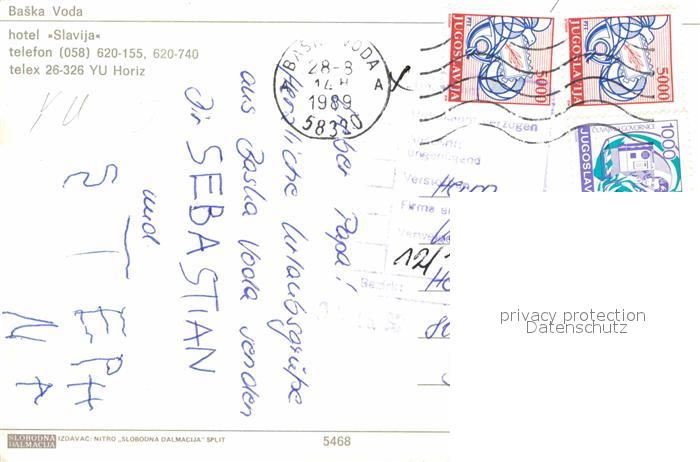 Baška Voda
hotel »Slavija«
telefon (058) 620-155, 620-740
telex 26-326 YU Horiz
YU
BAŠKA VODA
28-8
14 H
A A
1989
58320
PTT
JUGOSLAVIJA
5000
PTT
JUGOSLAVIJA
5000
1000
JUGOSLAV
Lieber Papa!
Herzliche Urlaubsgrüße
aus Baska Voda senden
dir SEBASTIAN
und
STEPHAN
verzogen
ungenügend
Firma
Bezirk:
12/
privacy protection
Datenschutz
SLOBODNA
DALMACIJA
IZDAVAČ: NITRO „SLOBODNA DALMACIJA" SPLIT
5468